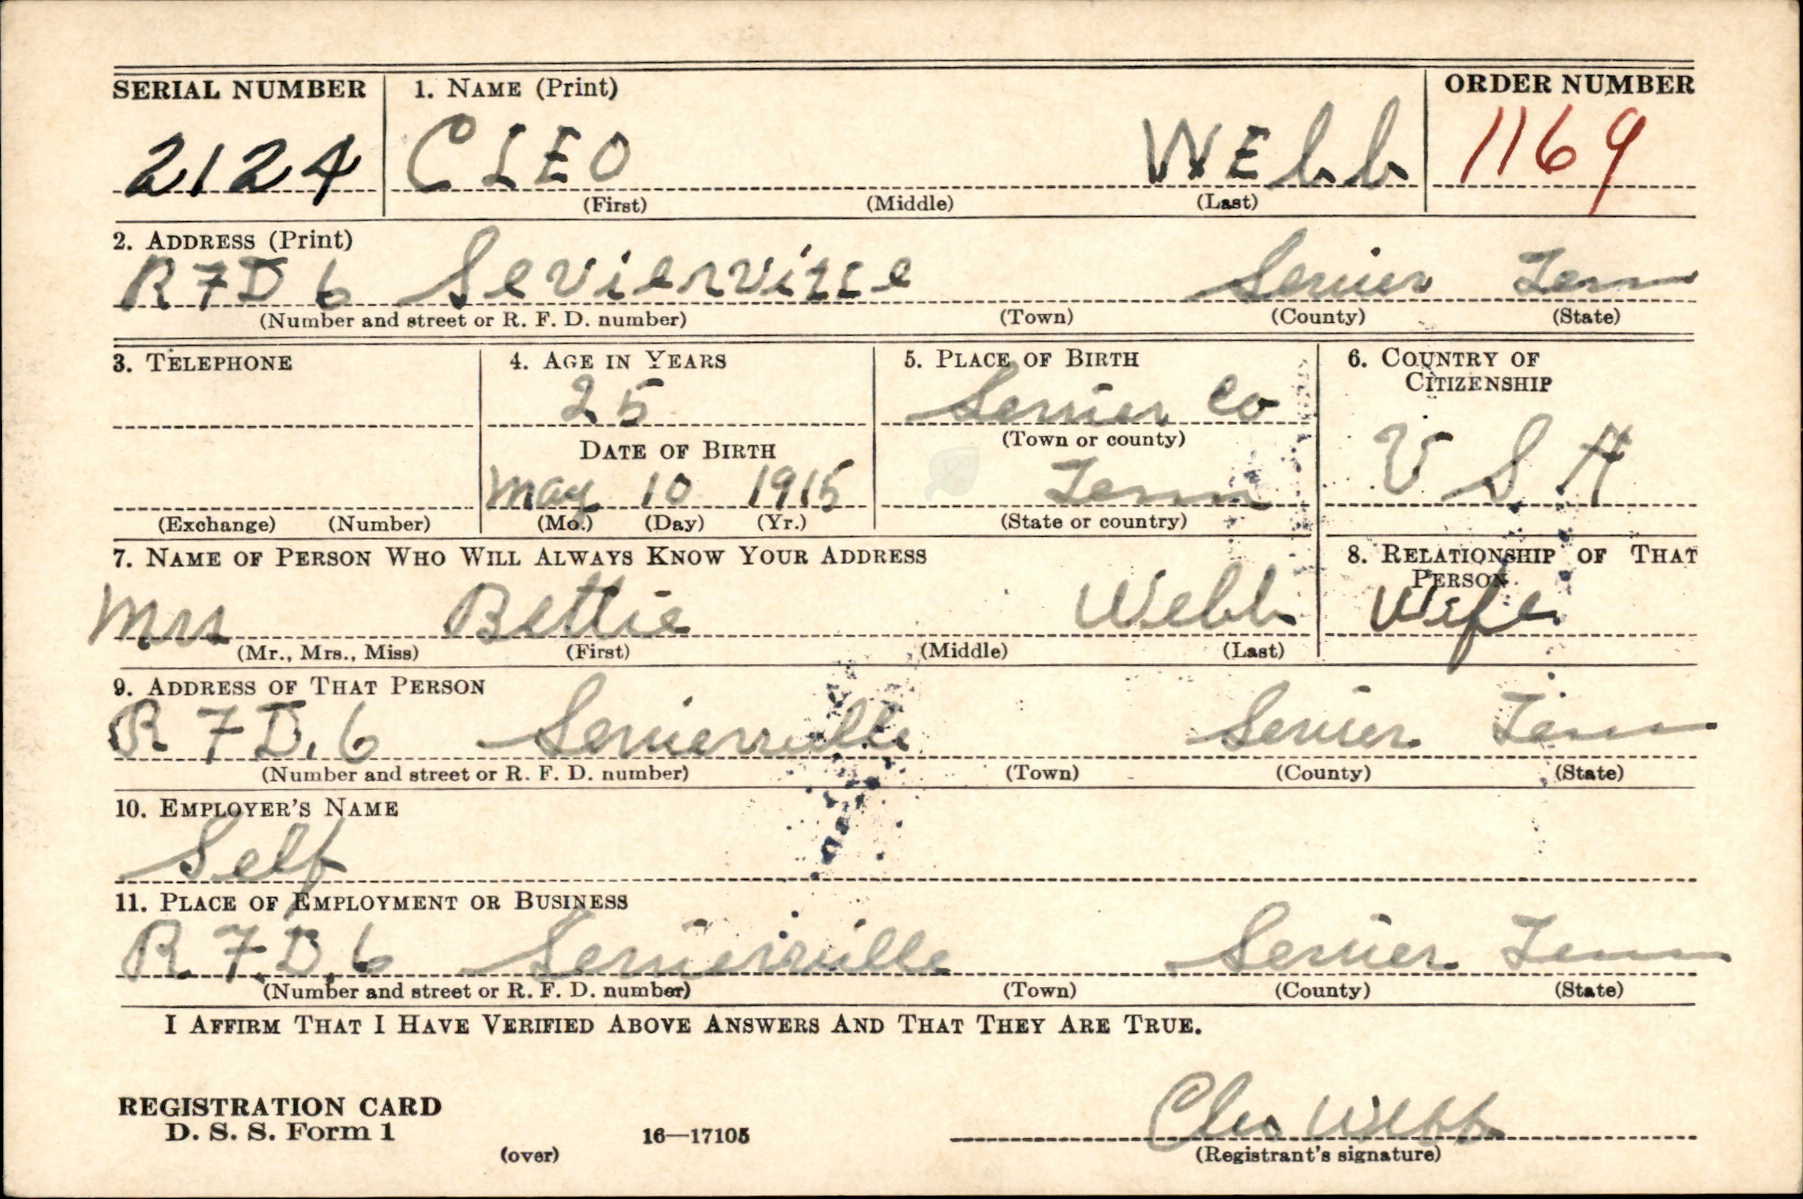 SERIAL NUMBER 1. NAME (Print) ORDER NUMBER
2124 CLEO WEbb 1169
(First) (Middle) (Last)
2. ADDRESS (Print)
R F D 6 Sevierville Sevier Tenn
(Number and street or R. F. D. number) (Town) (County) (State)
3. TELEPHONE 4. AGE IN YEARS 5. PLACE OF BIRTH 6. COUNTRY OF CITIZENSHIP
25 Sevier Co
DATE OF BIRTH (Town or county) U S A
May 10 1915 Tenn
(Exchange) (Number) (Mo.) (Day) (Yr.) (State or country)
7. NAME OF PERSON WHO WILL ALWAYS KNOW YOUR ADDRESS 8. RELATIONSHIP OF THAT PERSON
Mrs Bettie Webb Wife
(Mr., Mrs., Miss) (First) (Middle) (Last)
9. ADDRESS OF THAT PERSON
R F D. 6 Sevierville Sevier Tenn
(Number and street or R. F. D. number) (Town) (County) (State)
10. EMPLOYER'S NAME
Self
11. PLACE OF EMPLOYMENT OR BUSINESS
R. F. D. 6 Sevierville Sevier Tenn
(Number and street or R. F. D. number) (Town) (County) (State)
I AFFIRM THAT I HAVE VERIFIED ABOVE ANSWERS AND THAT THEY ARE TRUE.
REGISTRATION CARD
D. S. S. Form 1 16—17105 Cleo Webb
(over) (Registrant's signature)